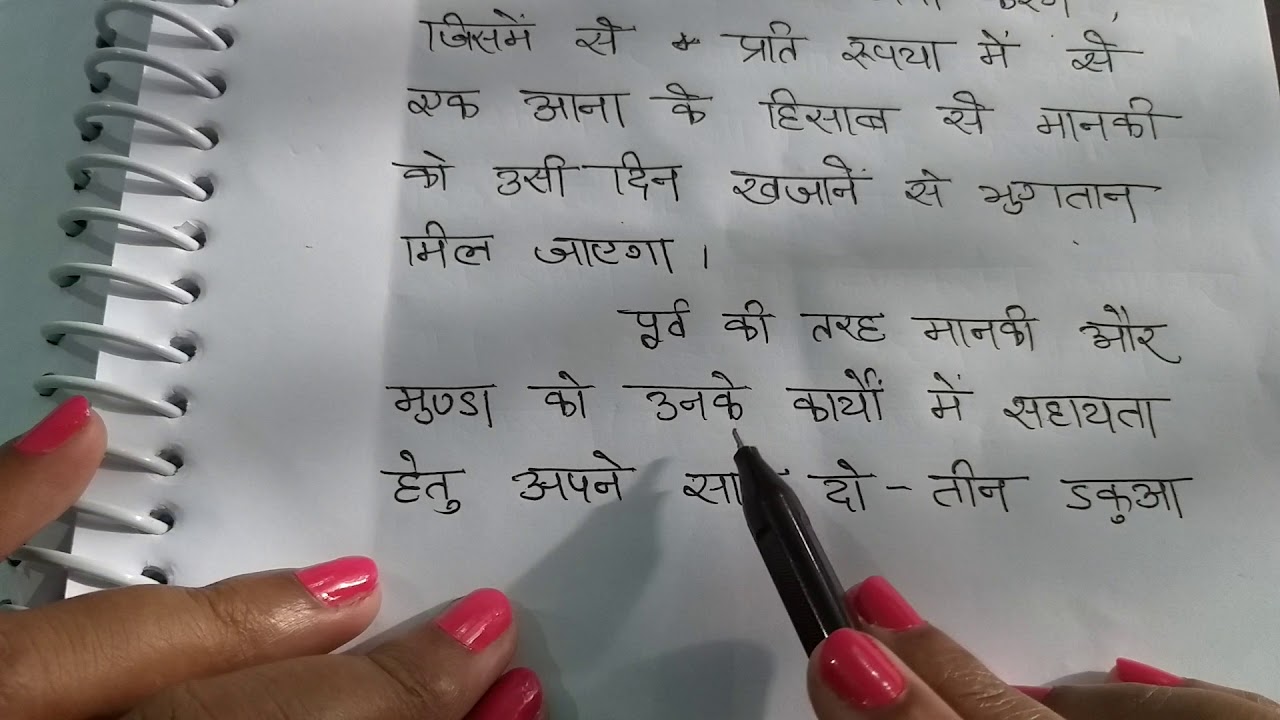 जिसमें से प्रति रूपया में से
एक आना के हिसाब से मानकी
को उसी दिन खजानें से भुगतान
मिल जाएगा।
पूर्व की तरह मानकी और
मुण्डा को उनके कार्यों में सहायता
हेतु अपने दो-तीन डकुआ